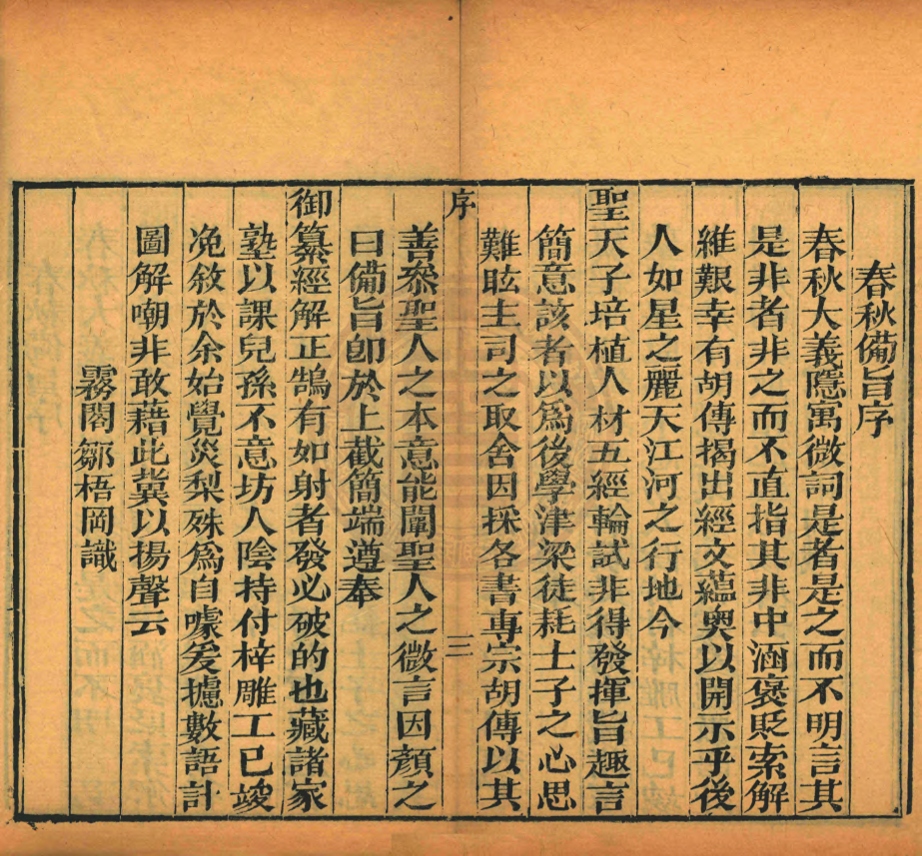 春秋備旨序
春秋大義隱寓微詞是者是之而不明言其
是非者非之而不直指其非中涵褒貶索解
維艱幸有胡傳揭出經文蘊奧以開示乎後
人如星之麗天江河之行地今
聖天子培植人材五經輪試非得發揮旨趣言
簡意該者以為後學津梁徒耗士子之心思
難眩主司之取舍因採各書專宗胡傳以其
序 三
善叅聖人之本意能闡聖人之微言因顏之
曰備旨卽於上截簡端遵奉
御纂經解正鵠有如射者發必破的也藏諸家
塾以課兒孫不意坊人陰持付梓雕工已竣
免敘於余始覺災梨殊為自噱爰攄數語計
圖解嘲非敢藉此冀以揚聲云
霧閣鄒梧岡識